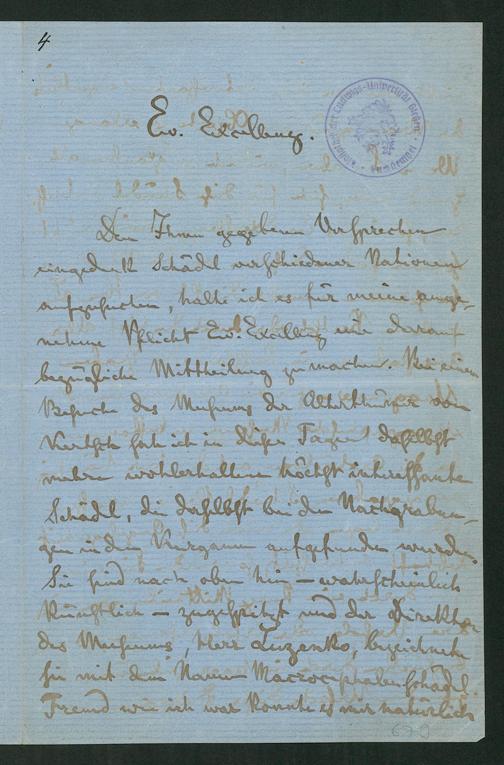 4
Ew. Excellenz.
Dem Ihnen gegebenen Versprechen
eingedenk Schädel verschiedener Nationen
aufzusuchen, halte ich es für meine ange-
nehme Pflicht Ew. Excellenz eine darauf
bezügliche Mittheilung zu machen. Bei einem
Besuche des Museums der Alterthümer von
Kertsch sah ich in diesen Tagen daselbst
mehre wohlerhaltene höchst interessante
Schädel, die daselbst bei den Nachgrabun-
gen in den Kurganen aufgefunden wurden.
Sie sind nach oben hin – wahrscheinlich
künstlich – zugespitzt und der Direktor
des Museums, Herr Luzenko, bezeichnete
sie mit dem Namen Macrocephalenschädel.
Fremd wie ich war konnte es mir natürlich